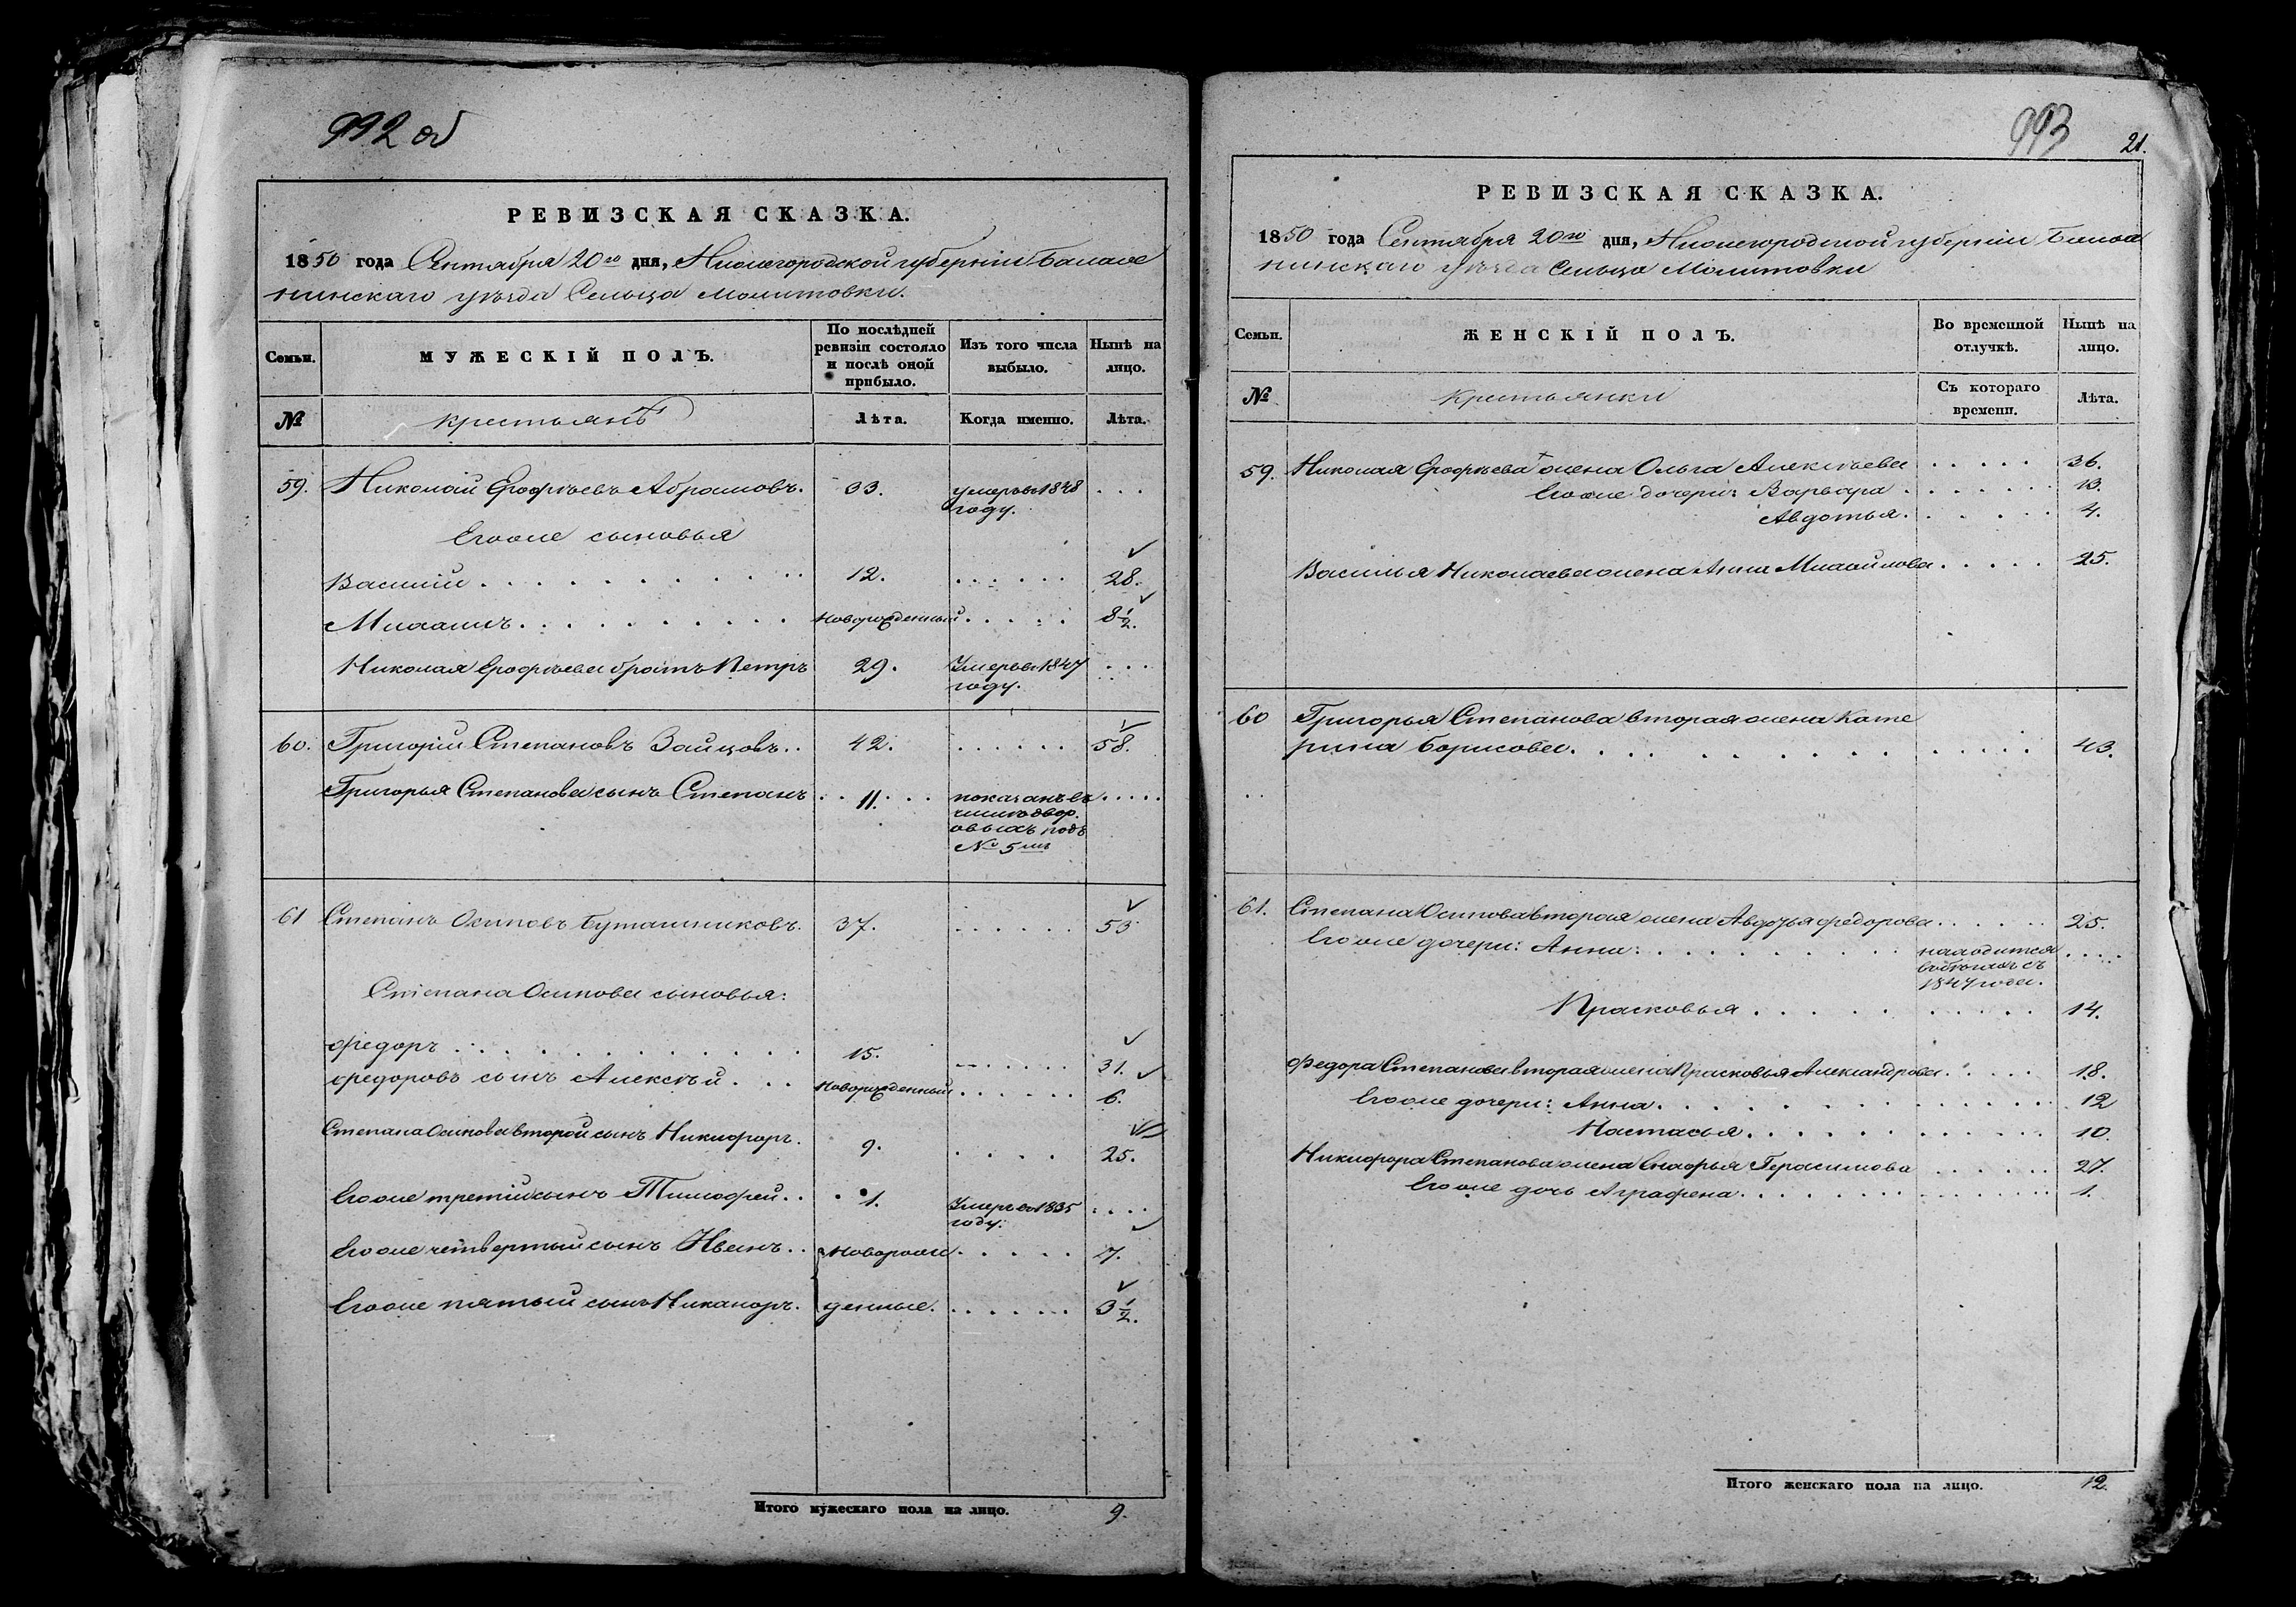 992 об
РЕВИЗСКАЯ СКАЗКА.
1850 года Сентября 20го дня, Нижегородской губерніи Балах
нинскаго уѣзда Сельца Молитовки.
Семьи.
МУЖЕСКІЙ ПОЛЪ.
По послѣдней ревизіи состояло и послѣ оной прибыло.
Изъ того числа выбыло.
Нынѣ на лицо.
№
крестьянъ
Лѣта.
Когда именно.
Лѣта.
59. Николай Ерофѣевъ Абрамовъ. 33. умеръ в 1848 году. . . .
Егоже сыновья
Василій . . . 12. . . . 28.
Михаилъ . . . новорожденный . . . 8 1/2.
Николая Ерофѣева братъ Петръ 29. Умеръ в 1847 году. . . .
60. Григорій Степановъ Зайцовъ . . 42. . . . 58.
Григорья Степанова сынъ Степанъ . . 11. . . показанъ въ
числѣ двор.
овыхъ подъ
№ 5мъ
61 Степанъ Осиповъ Буташниковъ. 37. . . . 53
Степана Осипова сыновья:
Федоръ . . . 15. . . . 31.
Федоровъ сынъ Алексѣй . . . новорожденный . . . 6.
Степана Осипова второй сынъ Никифоръ. 9. . . . 25.
Егоже третій сынъ Тимофей . . 1. Умеръ в 1835 году. . . .
Егоже четвертый сынъ Иванъ . . новорож . . . 7.
Егоже пятый сынъ Никаноръ. денные. . . . 3 1/2.
Итого мужескаго пола на лицо. 9.
993
21.
РЕВИЗСКАЯ СКАЗКА.
1850 года Сентября 20го дня, Нижегородской губерніи Балах
нинскаго уѣзда Сельца Молитовки
Семьи.
ЖЕНСКІЙ ПОЛЪ.
Во временной отлучкѣ.
Нынѣ на лицо.
№
Крестьянки
Съ котораго времени.
Лѣта.
59. Николая Ерофѣева жена Ольга Алексѣева . . . 36.
Егоже дочери: Варвара . . . 13.
Авдотья . . . 4.
Василья Николаева жена Анна Михайлова . . . 25.
60 Григорья Степанова вторая жена Кате
рина Борисова . . . 43.
61. Степана Осипова вторая жена Авдотья Федорова . . . 25.
Егоже дочери: Анна . . . находится
въ бѣгахъ съ
1847 года. . . .
Прасковья . . . 14.
Федора Степанова вторая жена Прасковья Александрова . . . 18.
Егоже дочери: Анна . . . 12
Настасья . . . 10.
Никифора Степанова жена Снафрья Герасимова . . . 27.
Егоже дочь Аграфена . . . 1.
Итого женскаго пола на лицо. 12.